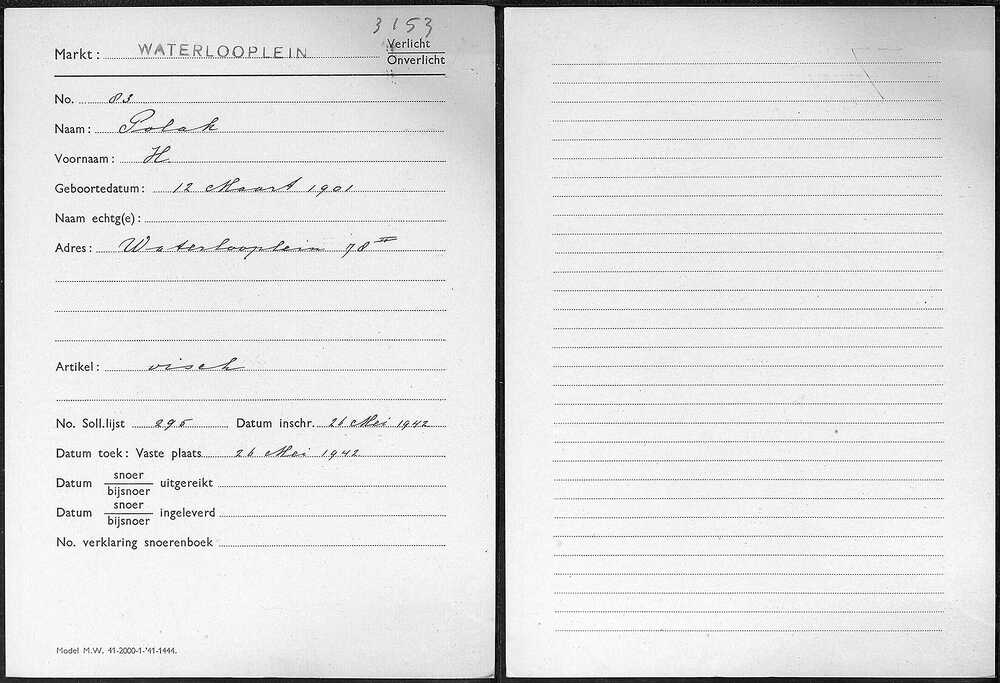 3153
Markt: WATERLOOPLEIN Verlicht
Onverlicht
No. 83
Naam: Polak
Voornaam: H.
Geboortedatum: 12 Maart 1901
Naam echtg(e):
Adres: Waterlooplein 78 II
Artikel: visch
No. Soll.lijst 295 Datum inschr. 26 Mei 1942
Datum toek: Vaste plaats 26 Mei 1942
Datum snoer
bijsnoer uitgereikt
Datum snoer
bijsnoer ingeleverd
No. verklaring snoerenboek
Model M.W. 41-2000-1-'41-1444.